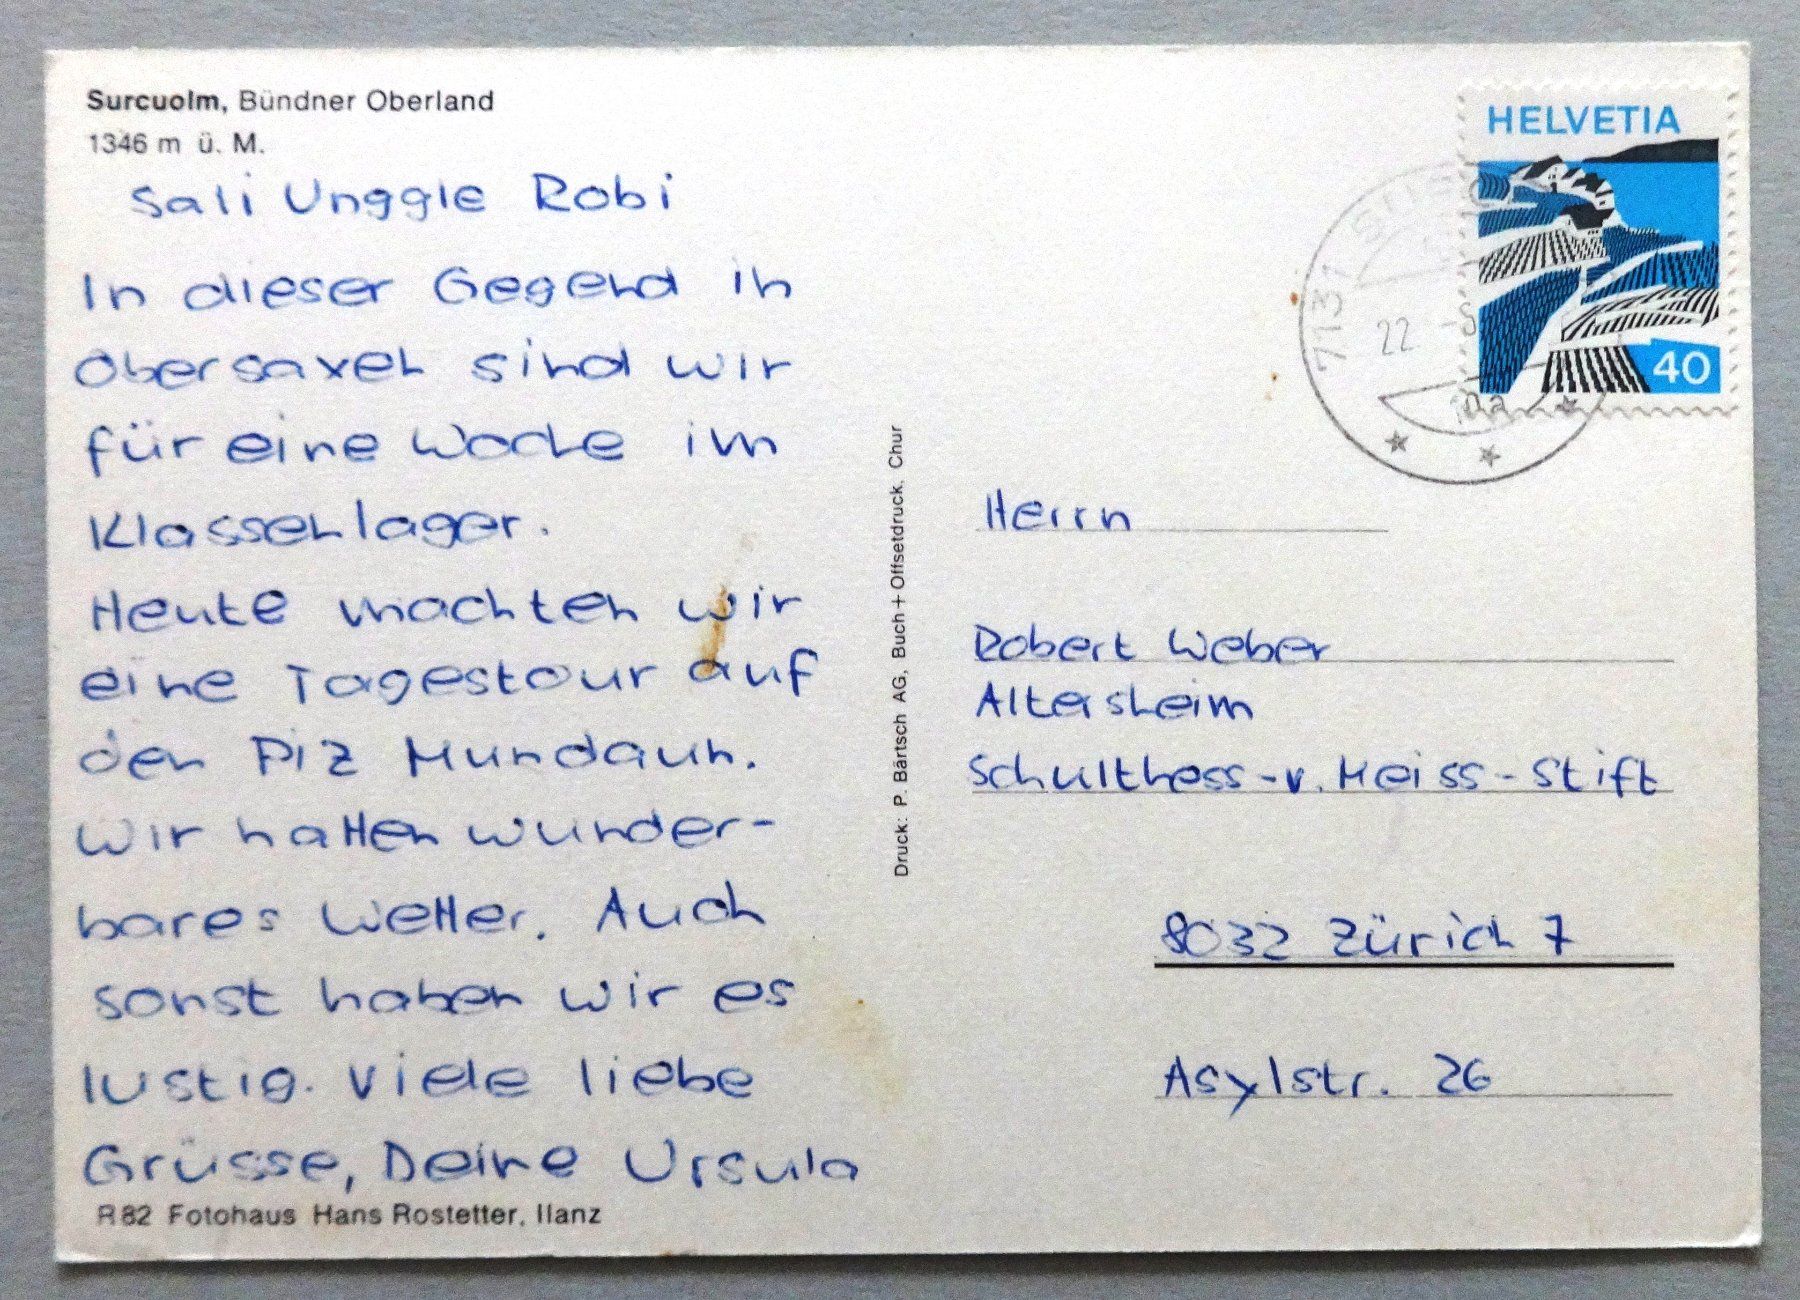 Surcuolm, Bündner Oberland
1346 m ü. M.
Sali Unggle Robi
In dieser Gegend in
Obersaxen sind wir
für eine Woche im
Klassenlager.
Heute machten wir
eine Tagestour auf
den Piz Mundaun.
Wir hatten wunder-
bares Wetter. Auch
sonst haben wir es
lustig. Viele liebe
Grüsse, Deine Ursula
R82 Fotohaus Hans Rostetter, Ilanz
Druck: P. Bärtsch AG, Buch + Offsetdruck, Chur
HELVETIA
40
7131
22
Herrn
Robert Weber
Altersheim
Schulthess-v. Meiss-Stift
8032 Zürich 7
Asylstr. 26